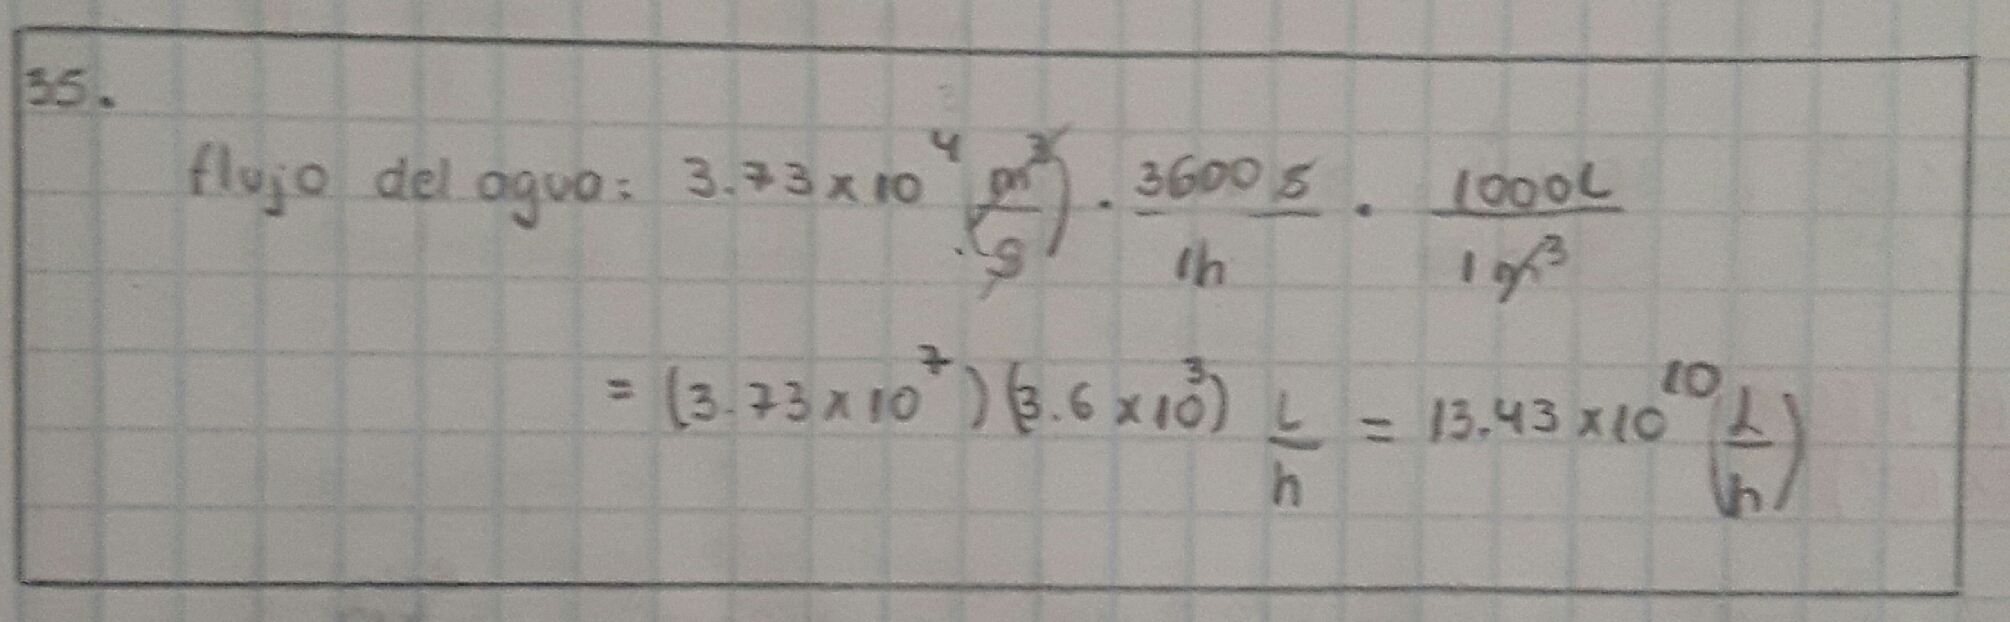 35.
flujo del agua: 3.73 x 10^4 (m^3/s) · 3600 s/1h · 1000L/1 m^3
= (3.73 x 10^7)(3.6 x 10^3) L/h = 13.43 x 10^10 (L/h)